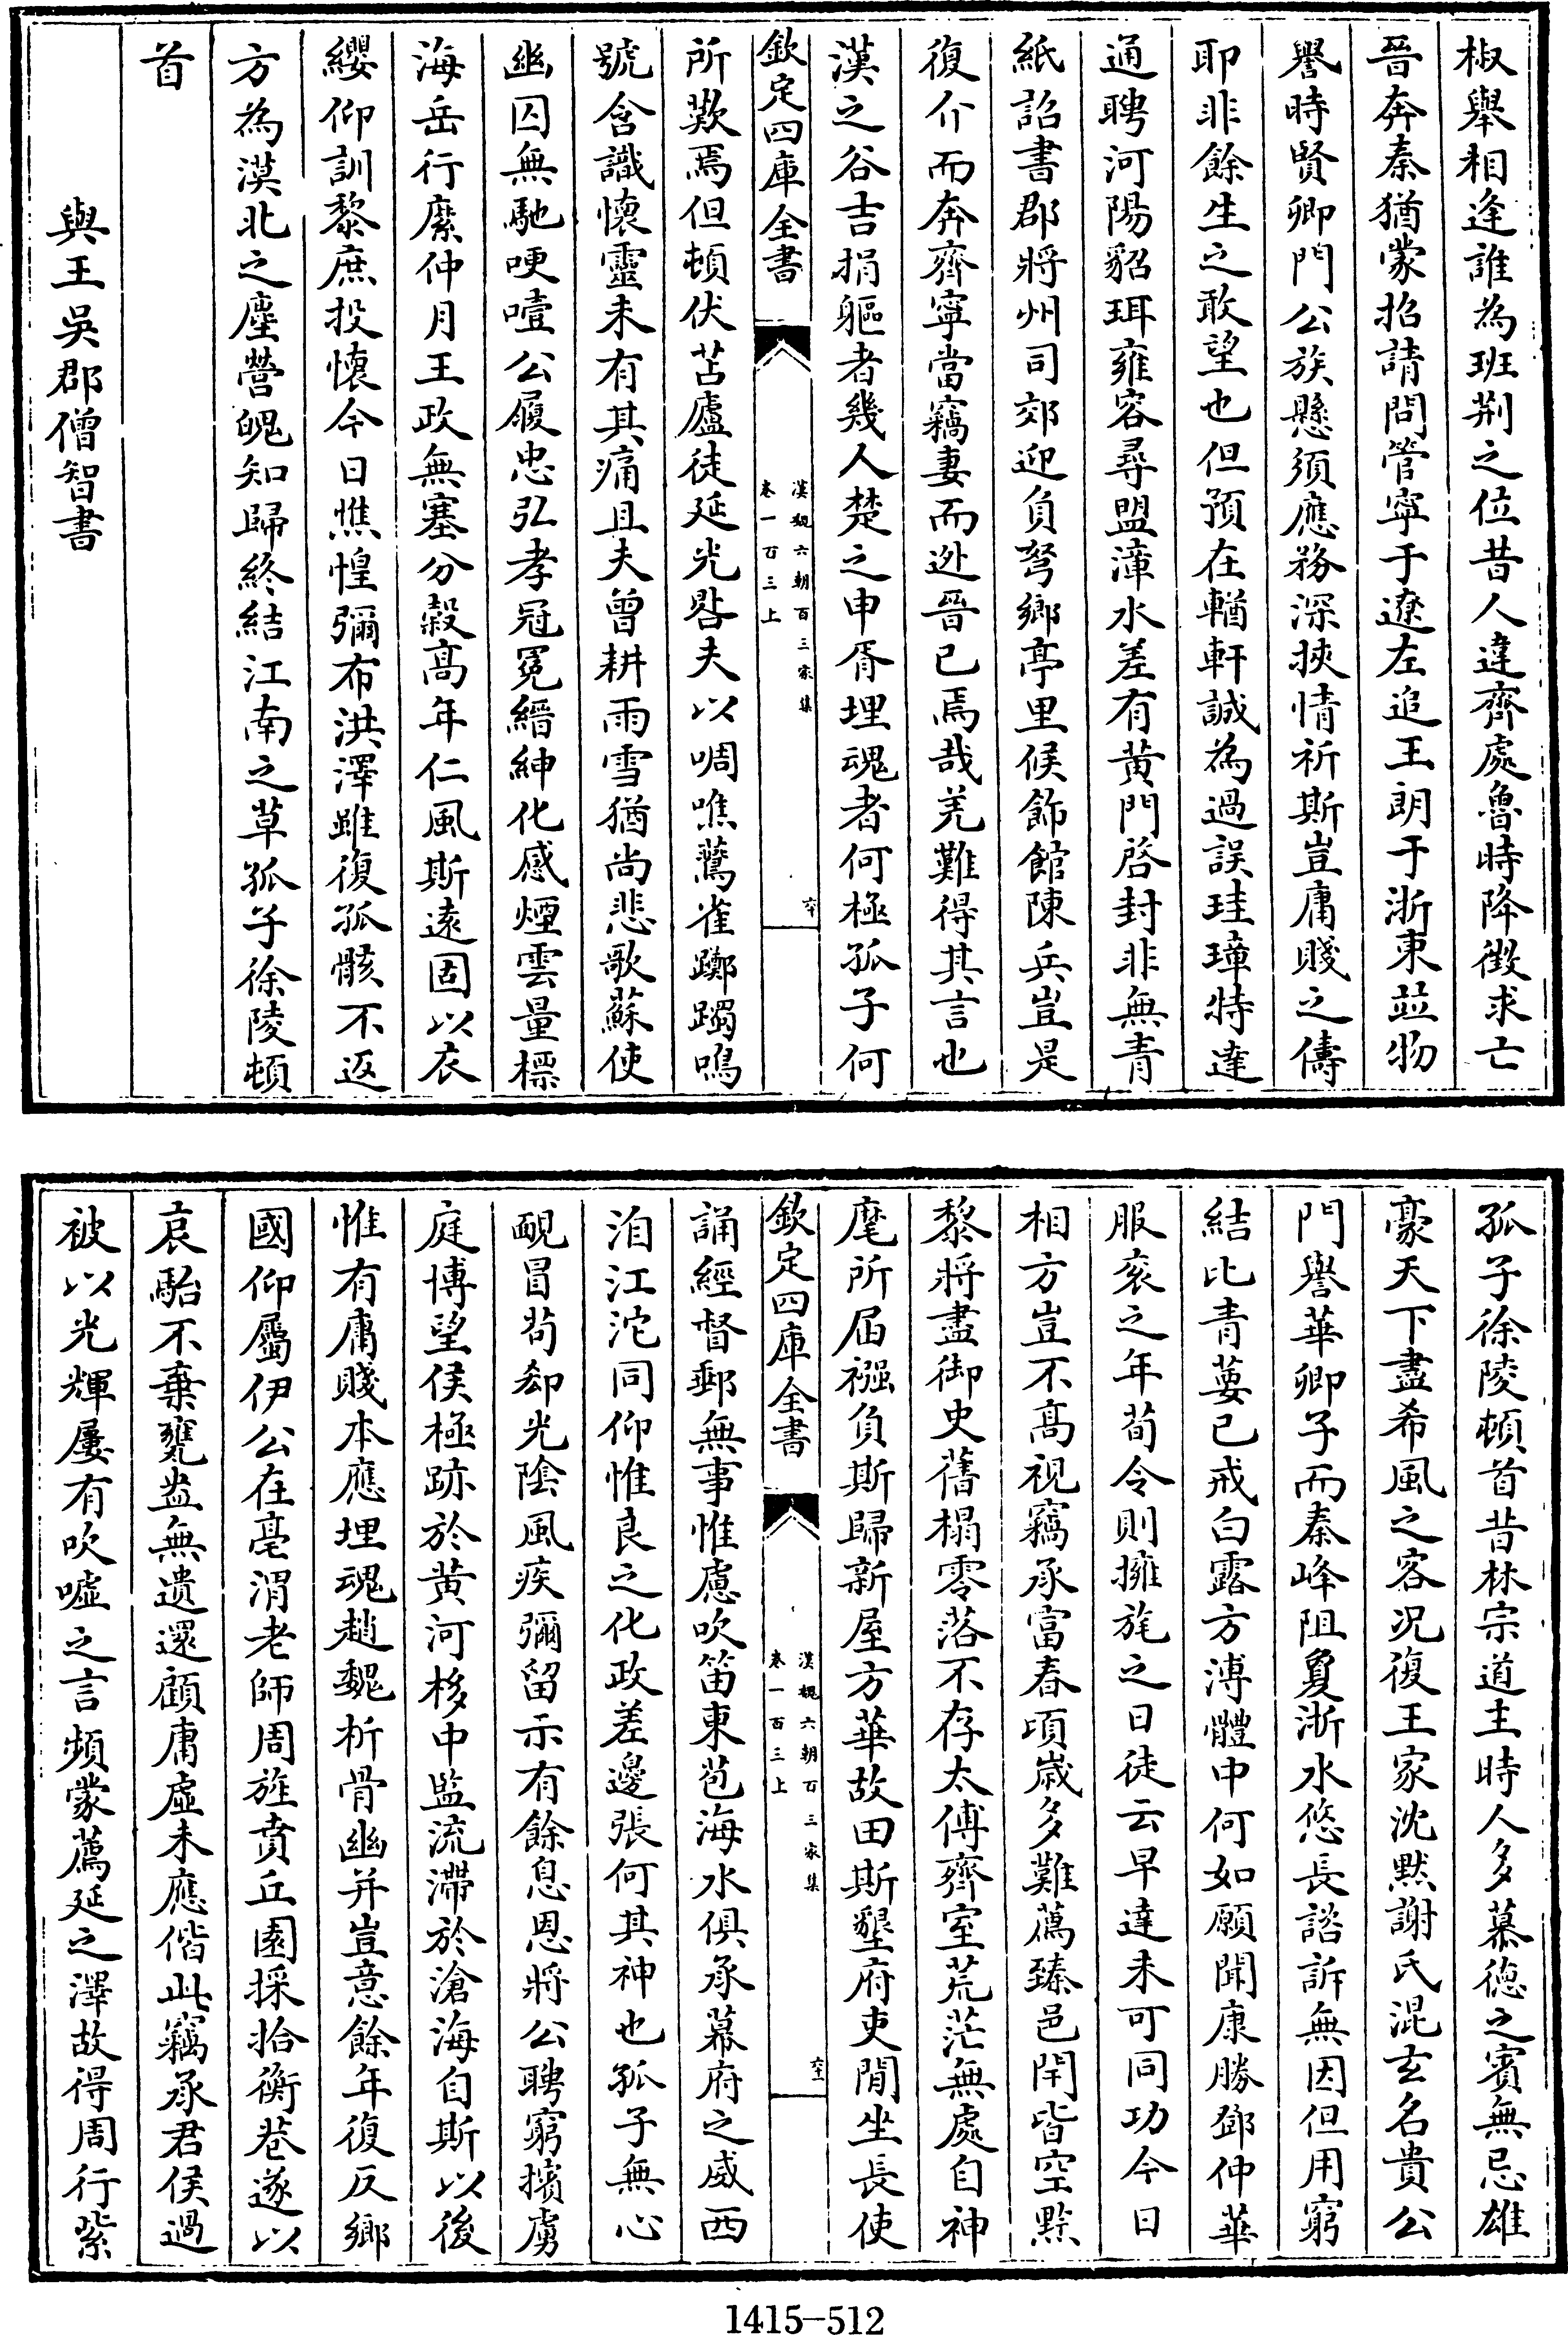 椒舉相逢誰為班荆之位昔人違齊處魯時降徵求亡
晉奔秦猶蒙招請問管寧于遼左追王朗于浙東並物
譽時賢卿門公族懸須應務深挾情祈斯豈庸賤之儔
耶非餘生之敢望也但預在輶軒誠為過誤珪璋特達
通聘河陽貂珥雍容尋盟漳水差有黄門啓封非無青
紙詔書郡將州司郊迎負弩鄉亭里候飾館陳兵豈是
復介而奔齊寧當竊妻而逃晉已焉哉羌難得其言也
漢之谷吉捐軀者幾人楚之申胥埋魂者何極孤子何
欽定四庫全書
漢魏六朝百三家集
卷一百三上
六十
所歎焉但頓伏苫廬徒延光晷夫以啁噍鷰雀躑躅鳴
號含識懷靈未有其痛且夫曾耕雨雪猶尚悲歌蘇使
幽囚無馳哽噎公履忠弘孝冠冕縉紳化感煙雲量標
海岳行縻仲月王政無塞分榖高年仁風斯遠固以衣
纓仰訓黎庶投懷今日憔惶彌布洪澤雖復孤骸不返
方為漠北之塵營魄知歸終結江南之草孤子徐陵頓
首
與王吳郡僧智書
孤子徐陵頓首昔林宗道主時人多慕德之賓無忌雄
豪天下盡希風之客况復王家沈默謝氏混玄名貴公
門譽華卿子而秦峰阻敻浙水悠長諮訴無因但用窮
結比青蔞已戒白露方溥體中何如願聞康勝鄧仲華
服衮之年荀令則擁旄之日徒云早達未可同功今日
相方豈不高視竊承富春頃歲多難薦臻邑閈皆空黔
黎將盡御史舊榻零落不存太傅齊室荒茫無處自神
麾所届襁負斯歸新屋方華故田斯墾府吏閒坐長使
欽定四庫全書
漢魏六朝百三家集
卷一百三上
六十一
誦經督郵無事惟慮吹笛東苞海水俱承幕府之威西
洎江沱同仰惟良之化政差邊張何其神也孤子無心
靦冒茍卻光陰風疾彌留示有餘息恩將公聘窮擯虜
庭博望侯極跡於黄河栘中監流滯於滄海自斯以後
惟有庸賤本應埋魂趙魏析骨幽并豈意餘年復反鄉
國仰屬伊公在亳渭老師周旌賁丘園採拾衡巷遂以
哀駘不棄甕盎無遺還顧庸虛未應偕此竊承君侯過
被以光輝屢有吹噓之言頻蒙薦延之澤故得周行紫
1415-512